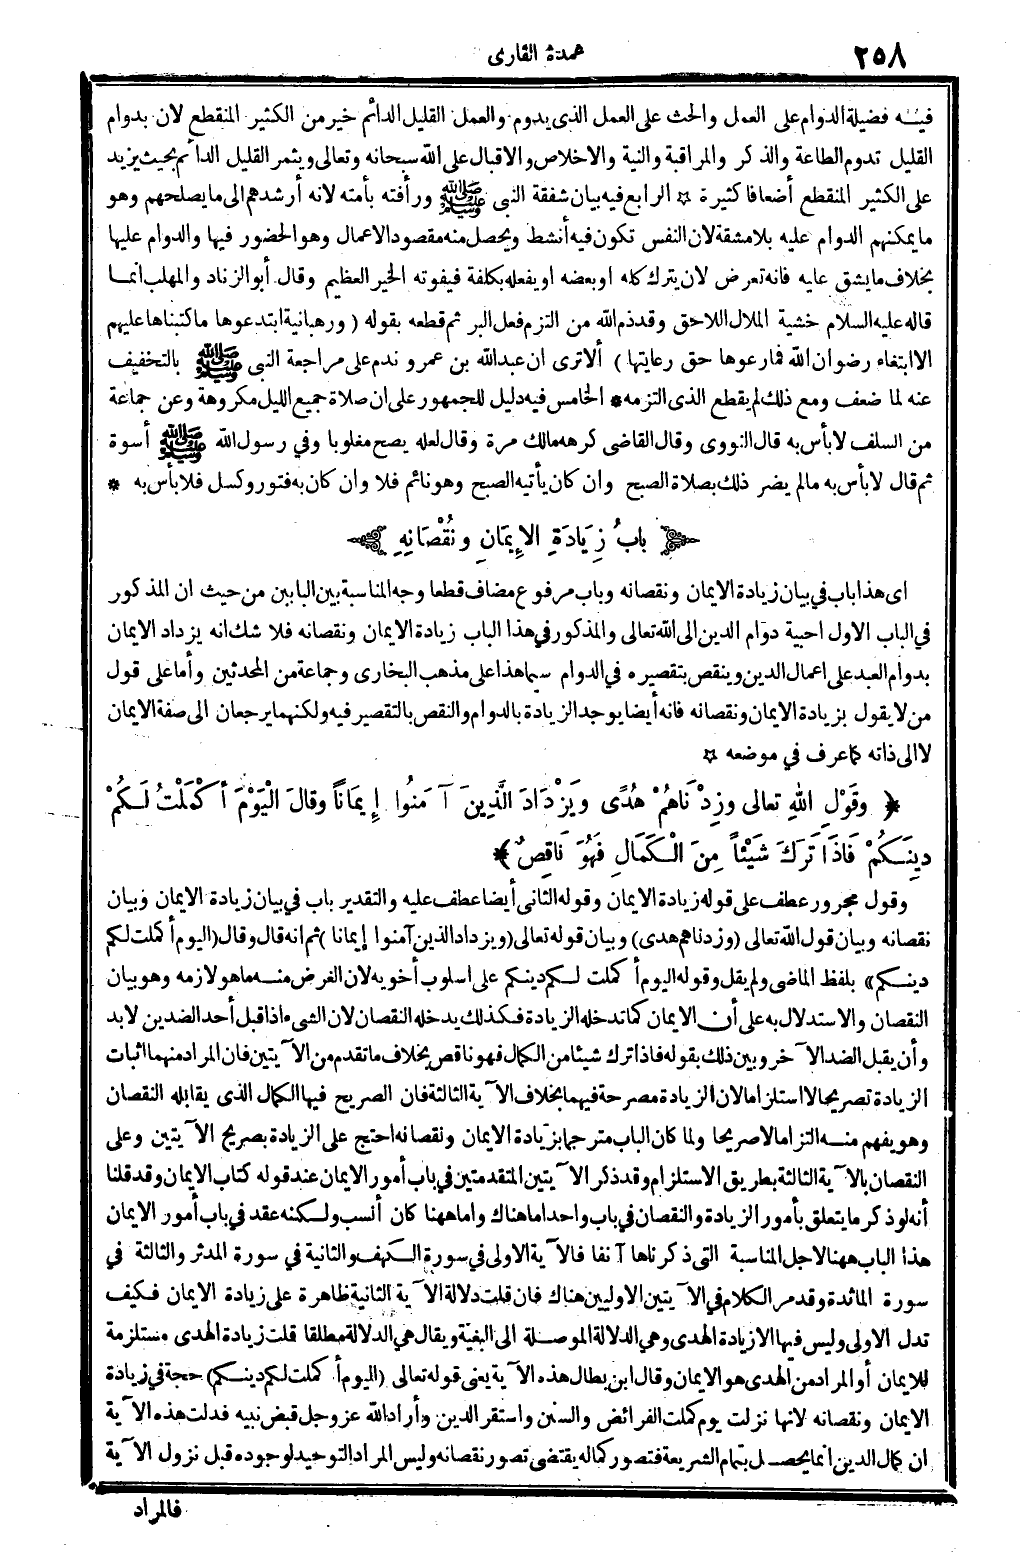 ٢٥٨
عمدة القارى
فيه فضيلة الدوام على العمل والحث على العمل الذى يدوم والعمل القليل الدائم خير من الكثير المنقطع لان بدوام
القليل تدوم الطاعة والذكر والمراقبة والنية والاخلاص والاقبال على الله سبحانه وتعالى ويثمر القليل الدائم بحيث يزيد
على الكثير المنقطع أضعافا كثيرة * الرابع فيه بيان شفقة النبى ﷺ ورأفته بأمته لانه أرشدهم الى ما يصلحهم وهو
ما يمكنهم الدوام عليه بلا مشقة لان النفس تكون فيه أنشط ويحصل منه مقصود الاعمال وهو الحضور فيها والدوام عليها
بخلاف ما يشق عليه فانه تعرض لان يترك كله او بعضه او يفعله بكلفة فيفوته الخير العظيم وقال أبو الزناد والمهلب انما
قاله عليه السلام خشية الملال اللاحق وقد ذم الله من التزم فعل البر ثم قطعه بقوله ( ورهبانية ابتدعوها ما كتبناها عليهم
الا ابتغاء رضوان الله فما رعوها حق رعايتها ) ألا ترى ان عبد الله بن عمرو ندم على مراجعة النبى ﷺ بالتخفيف
عنه لما ضعف ومع ذلك لم يقطع الذى التزمه * الخامس فيه دليل للجمهور على ان صلاة جميع الليل مكروهة وعن جماعة
من السلف لا بأس به قال النووى وقال القاضى كرهه مالك مرة وقال لعله يصبح مغلوبا وفي رسول الله ﷺ أسوة
ثم قال لا بأس به مالم يضر ذلك بصلاة الصبح وان كان يأتيه الصبح وهو نائم فلا وان كان به فتور وكسل فلا بأس به *
بابُ زِيَادَةِ الإِيمَانِ ونُقْصَانِهِ
اى هذا باب في بيان زيادة الايمان ونقصانه وباب مرفوع مضاف قطعا وجه المناسبة بين البابين من حيث ان المذكور
في الباب الاول احبية دوام الدين الى الله تعالى والمذكور في هذا الباب زيادة الايمان ونقصانه فلا شك انه يزداد الايمان
بدوام العبد على اعمال الدين وينقص بتقصيره في الدوام سيما هذا على مذهب البخارى وجماعة من المحدثين وأما على قول
من لا يقول بزيادة الايمان ونقصانه فانه أيضا يوجد الزيادة بالدوام والنقص بالتقصير فيه ولكنهما يرجعان الى صفة الايمان
لا الى ذاته كما عرف في موضعه *
﴿ وقَوْلِ اللهِ تعالى وزِدْنَاهُمْ هُدًى ويَزْدَادَ الَّذِينَ آمَنُوا إِيمَاناً وقالَ الْيَوْمَ أَكْمَلْتُ لَكُمْ
دِينَكُمْ فَاذَا تَرَكَ شَيْئاً مِنَ الْكَمَالِ فَهُوَ نَاقِصٌ ﴾
وقول مجرور عطف على قوله زيادة الايمان وقوله الثانى أيضا عطف عليه والتقدير باب في بيان زيادة الايمان وبيان
نقصانه وبيان قول الله تعالى (وزدناهم هدى) وبيان قوله تعالى (ويزداد الذين آمنوا إيمانا) ثم انه قال وقال (اليوم أكملت لكم
دينكم) بلفظ الماضى ولم يقل وقوله اليوم أكملت لكم دينكم على اسلوب أخويه لان الغرض منه ما هو لازمه وهو بيان
النقصان والاستدلال به على أن الايمان كما تدخله الزيادة فكذلك يدخله النقصان لان الشىء اذا قبل أحد الضدين لا بد
وأن يقبل الضد الآخر وبين ذلك بقوله فاذا ترك شيئا من الكمال فهو ناقص بخلاف ما تقدم من الآيتين فان المراد منهما اثبات
الزيادة تصريحا لا استلزاما لان الزيادة مصرحة فيهما بخلاف الآية الثالثة فان الصريح فيها الكمال الذى يقابله النقصان
وهو يفهم منه التزاما لا صريحا ولما كان الباب مترجما بزيادة الايمان ونقصانه احتج على الزيادة بصريح الآيتين وعلى
النقصان بالآية الثالثة بطريق الاستلزام وقد ذكر الآيتين المتقدمتين في باب أمور الايمان عند قوله كتاب الايمان وقد قلنا
أنه لو ذكر ما يتعلق بأمور الزيادة والنقصان في باب واحد اما هناك واما ههنا كان أنسب ولكنه عقد في باب أمور الايمان
هذا الباب ههنا لاجل المناسبة التى ذكرناها آنفا فالآية الاولى في سورة الكهف والثانية في سورة المدثر والثالثة في
سورة المائدة وقد مر الكلام في الآيتين الاوليين هناك فان قلت دلالة الآية الثانية ظاهرة على زيادة الايمان فكيف
تدل الاولى وليس فيها الا زيادة الهدى وهي الدلالة الموصلة الى البغية ويقال هي الدلالة مطلقا قلت زيادة الهدى مستلزمة
للايمان أو المراد من الهدى هو الايمان وقال ابن بطال هذه الآية يعنى قوله تعالى (اليوم أكملت لكم دينكم) حجة في زيادة
الايمان ونقصانه لانها نزلت يوم كملت الفرائض والسنن واستقر الدين وأراد الله عز وجل قبض نبيه فدلت هذه الآية
ان كمال الدين انما يحصل بتمام الشريعة فتصور كماله يقتضى تصور نقصانه وليس المراد التوحيد لوجوده قبل نزول الآية
فالمراد